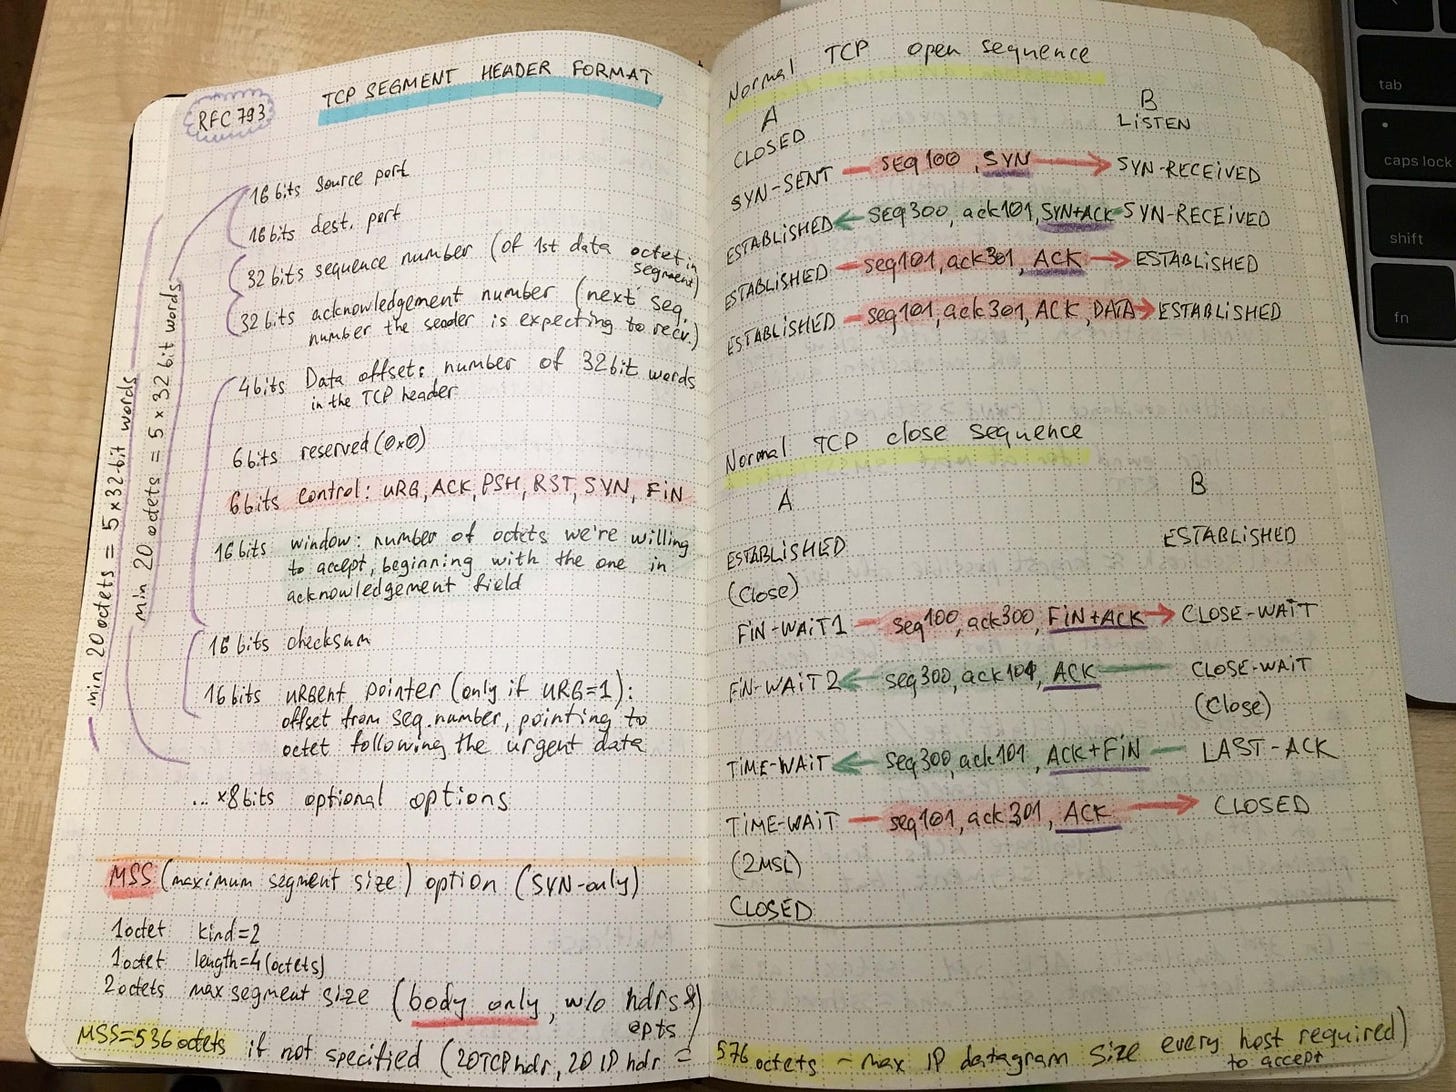 RFC 793
TCP SEGMENT HEADER FORMAT
16 bits source port
16 bits dest. port
32 bits sequence number (of 1st data octet in
segment)
32 bits acknowledgement number (next seq.
number the sender is expecting to recv.)
4 bits Data offset: number of 32 bit words
in the TCP header
6 bits reserved (0x0)
6 bits control: URG, ACK, PSH, RST, SYN, FiN
16 bits window: number of octets we're willing
to accept, beginning with the one in
acknowledgement field
16 bits checksum
16 bits urgent pointer (only if URG=1):
offset from seq. number, pointing to
octet following the urgent data
... x8 bits optional options
min 20 octets = 5 x 32-bit words
min 20 octets = 5 x 32 bit words
MSS (maximum segment size) option (SYN-only)
1 octet kind=2
1 octet length=4 (octets)
2 octets max segment size (body only, w/o hdrs &
opts)
MSS=536 octets if not specified (20 TCP hdr, 20 IP hdr =
Normal TCP open sequence
A B
CLOSED LiSTEN
SYN-SENT seq100, SYN SYN-RECEiVED
ESTABLiSHED seq300, ack101, SYN+ACK SYN-RECEiVED
ESTABLiSHED seq101, ack301, ACK ESTABLiSHED
ESTABLiSHED seq101, ack301, ACK, DATA ESTABLiSHED
Normal TCP close sequence
A B
ESTABLiSHED ESTABLiSHED
(Close)
FiN-WAiT1 seq100, ack300, FiN+ACK CLOSE-WAiT
FiN-WAiT2 seq300, ack101, ACK CLOSE-WAiT
(Close)
TiME-WAiT seq300, ack101, ACK+FiN LAST-ACK
TiME-WAiT seq101, ack301, ACK CLOSED
(2MSL)
CLOSED
576 octets - max IP datagram size every host required)
to accept
tab
caps lock
shift
fn